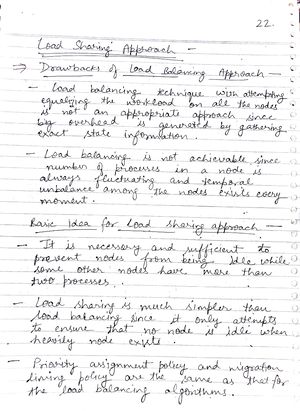 22.
Load Sharing Approach –
⇒ Drawbacks of Load Balancing Approach —
- Load balancing technique with attempting
equalizing the workload on all the nodes
is not an appropriate approach since
big overhead is generated by gathering
exact state information.
- Load balancing is not achievable since
number of processes in a node is
always fluctuating and temporal
unbalance among the nodes exists every
moment.
Basic Idea for Load sharing approach —
- It is necessary and sufficient to
prevent nodes from being idle while
some other nodes have more than
two processes.
- Load sharing is much simpler than
load balancing since it only attempts
to ensure that no node is idle when
heavily node exists.
- Priority assignment policy and migration
limiting policy are the same as that for
the load balancing algorithms.